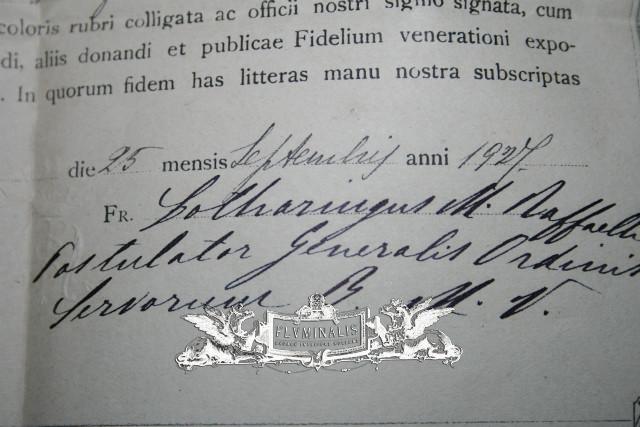 coloris rubri colligata ac officii nostri sigillo signata, cum
di, aliis donandi et publicae Fidelium venerationi expo-
. In quorum fidem has litteras manu nostra subscriptas
die 25 mensis Septembris anni 1927.
FR. Lotharingus M. Raffaelli
Postulator Generalis Ordinis
Servorum B. M. V.
FLVMINALIS